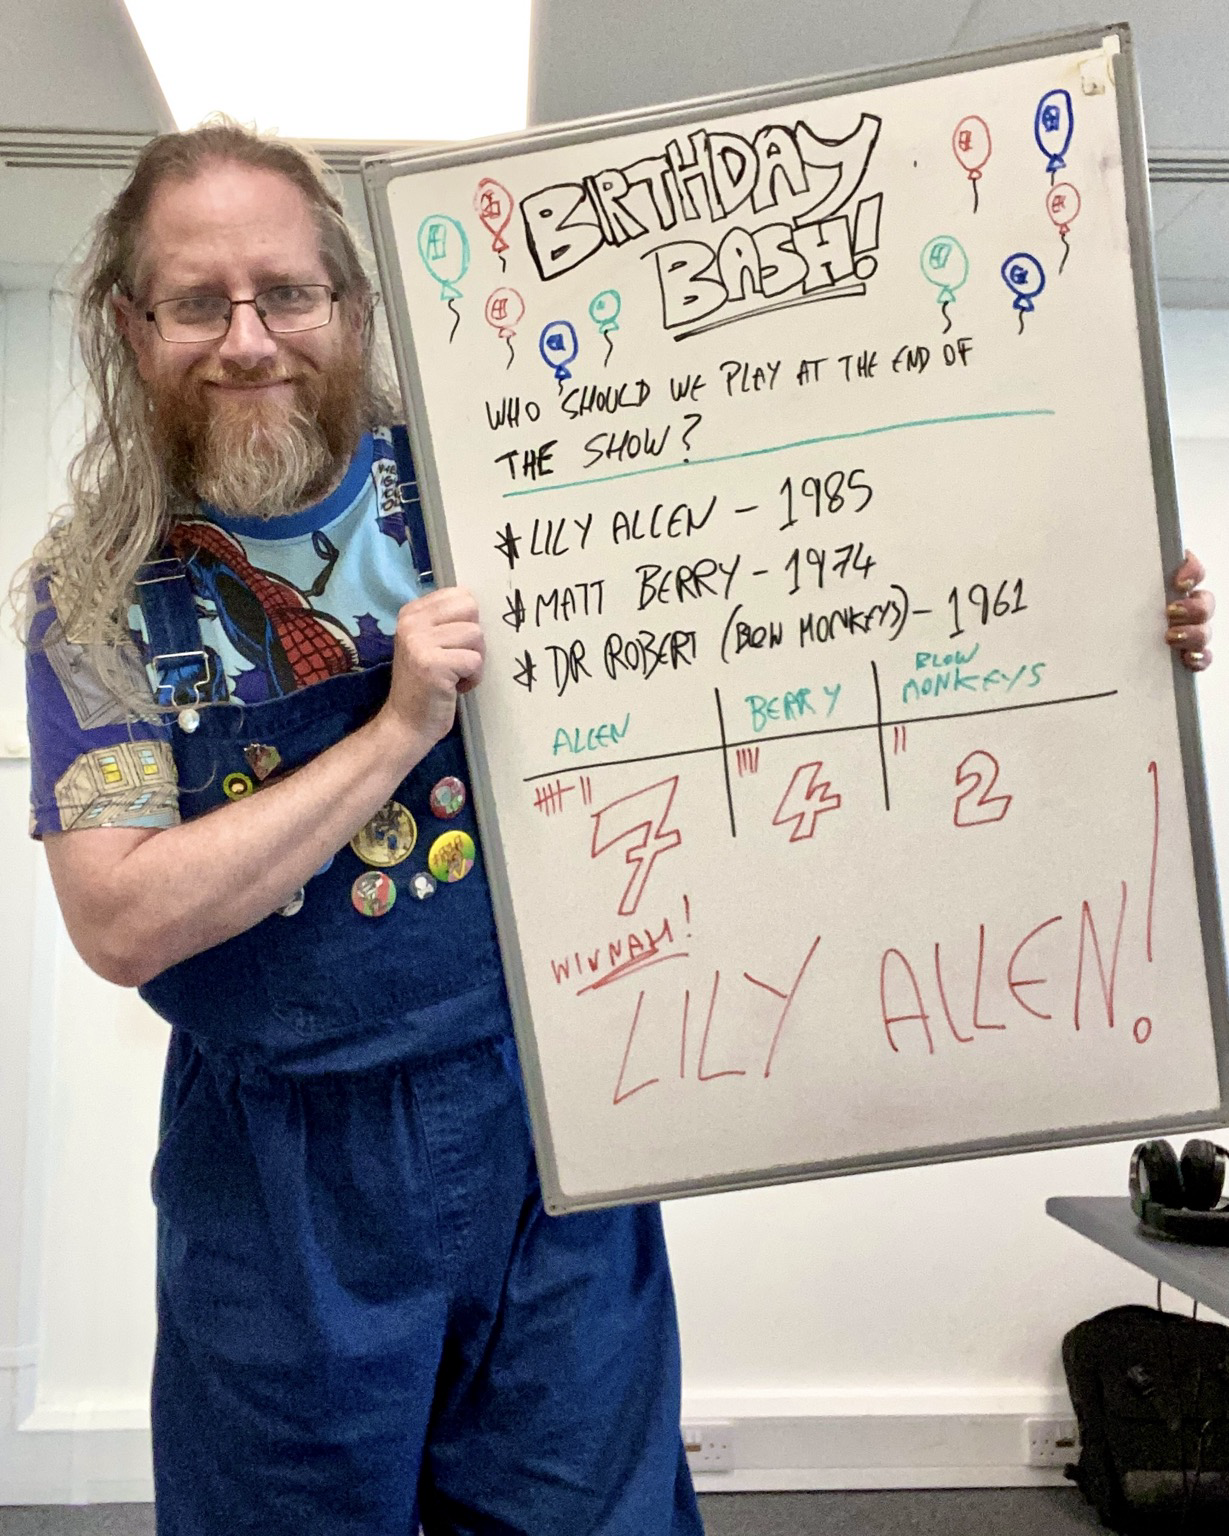 BIRTHDAY
BASH!
WHO SHOULD WE PLAY AT THE END OF
THE SHOW?
* LILY ALLEN - 1985
* MATT BERRY - 1974
* DR ROBERT (BLOW MONKEYS) - 1961
ALLEN
BERRY
BLOW
MONKEYS
7
4
2
WINNAH!
LILY ALLEN!